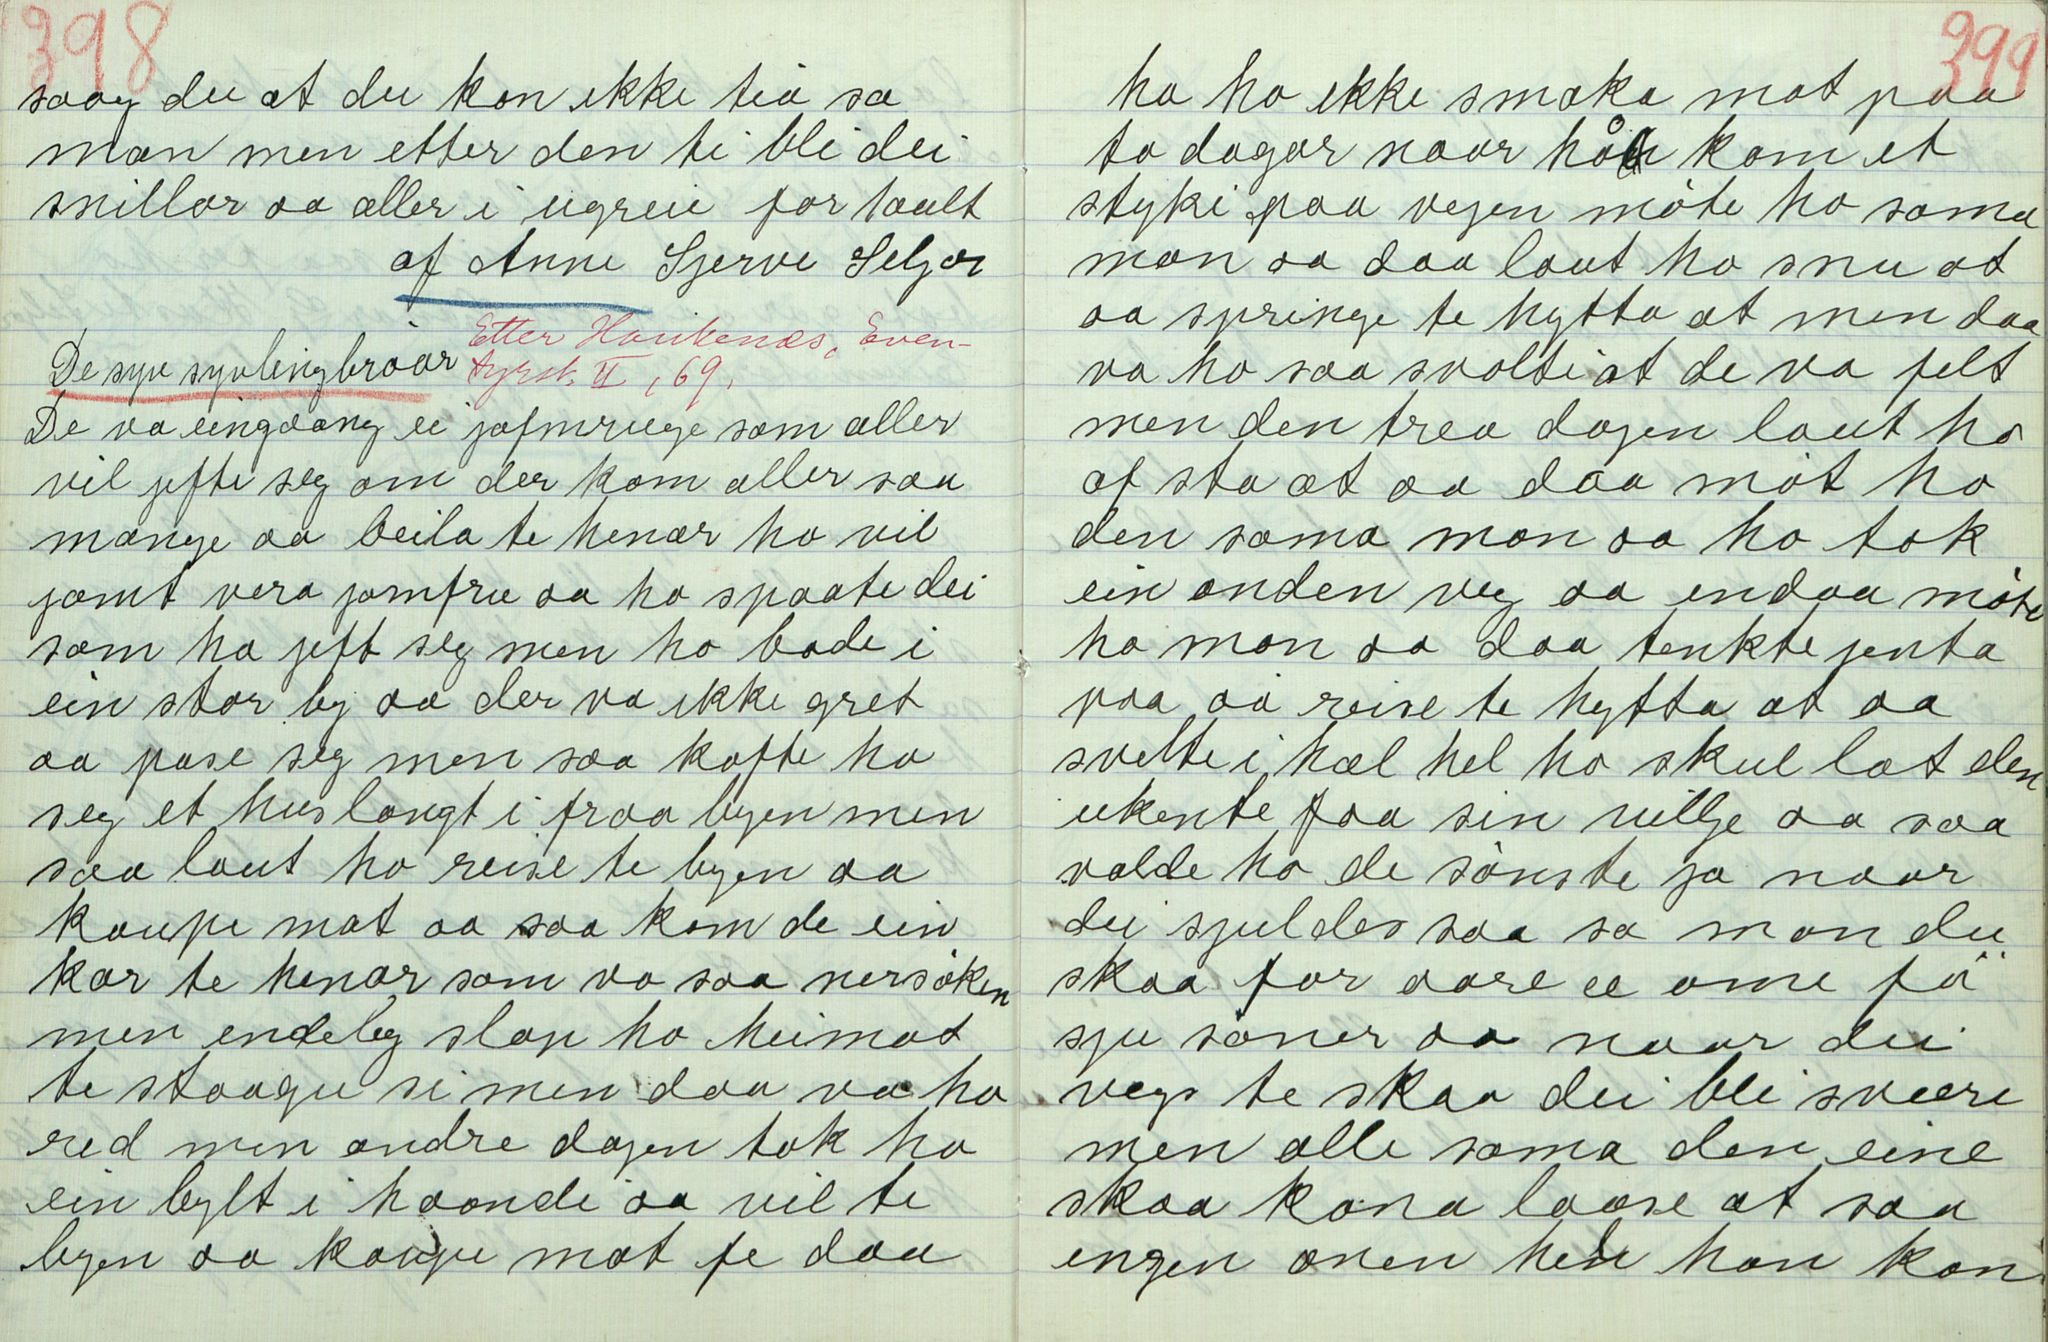 398
saag du at du kan ikke tia sa
man men etter den ti bli dei
snillar aa aller i ugreie fortault
af Anne Skjerve Seljor
De syv syvlingbröar
Etter Haukenæs, Even-
tyrst. II, 69.
De va eingaang ei jofmruge som aller
vil jefte seg om der kom aller saa
mange aa beila te henar ho vil
jamt vera jomfru aa ho spaate dei
som ha jeft seg men ho bode i
ein stor by aa der va ikke gret
aa pase seg men saa kofte ho
seg et hus langt i fraa byen men
saa laut ho reise te byen aa
kaupe mat aa saa kom de ein
kar te henar som va saa nersöken
men endeleg slap ho heimat
te staagu si men daa va ho
red men andre dagen tok ho
ein bylt i haande aa vil te
byen aa kaupe mat fe daa
399
ha ho ikke smaka mat paa
to dagar naar hån kom et
styki paa vegen möte ho sama
man aa daa laut ho snu at
aa springe te hytta at men daa
va ho saa svolti at de va felt
men den trea dagen laut ho
af sta at aa daa möt ho
den sama man aa ho tok
ein anden veg aa endaa möte
ho man aa daa tenkte jenta
paa aa reise te hytta at aa
svelte i hæl hel ho skul lat den
ukente faa sin villje aa saa
valde ho de sönste ja naar
dei sjuldes saa sa man du
skaa for aare ee ome få
sju söner aa naar dei
vegs te skaa dei bli svære
men alle sama den eine
skaa kana laase at saa
engen anen heil han kan